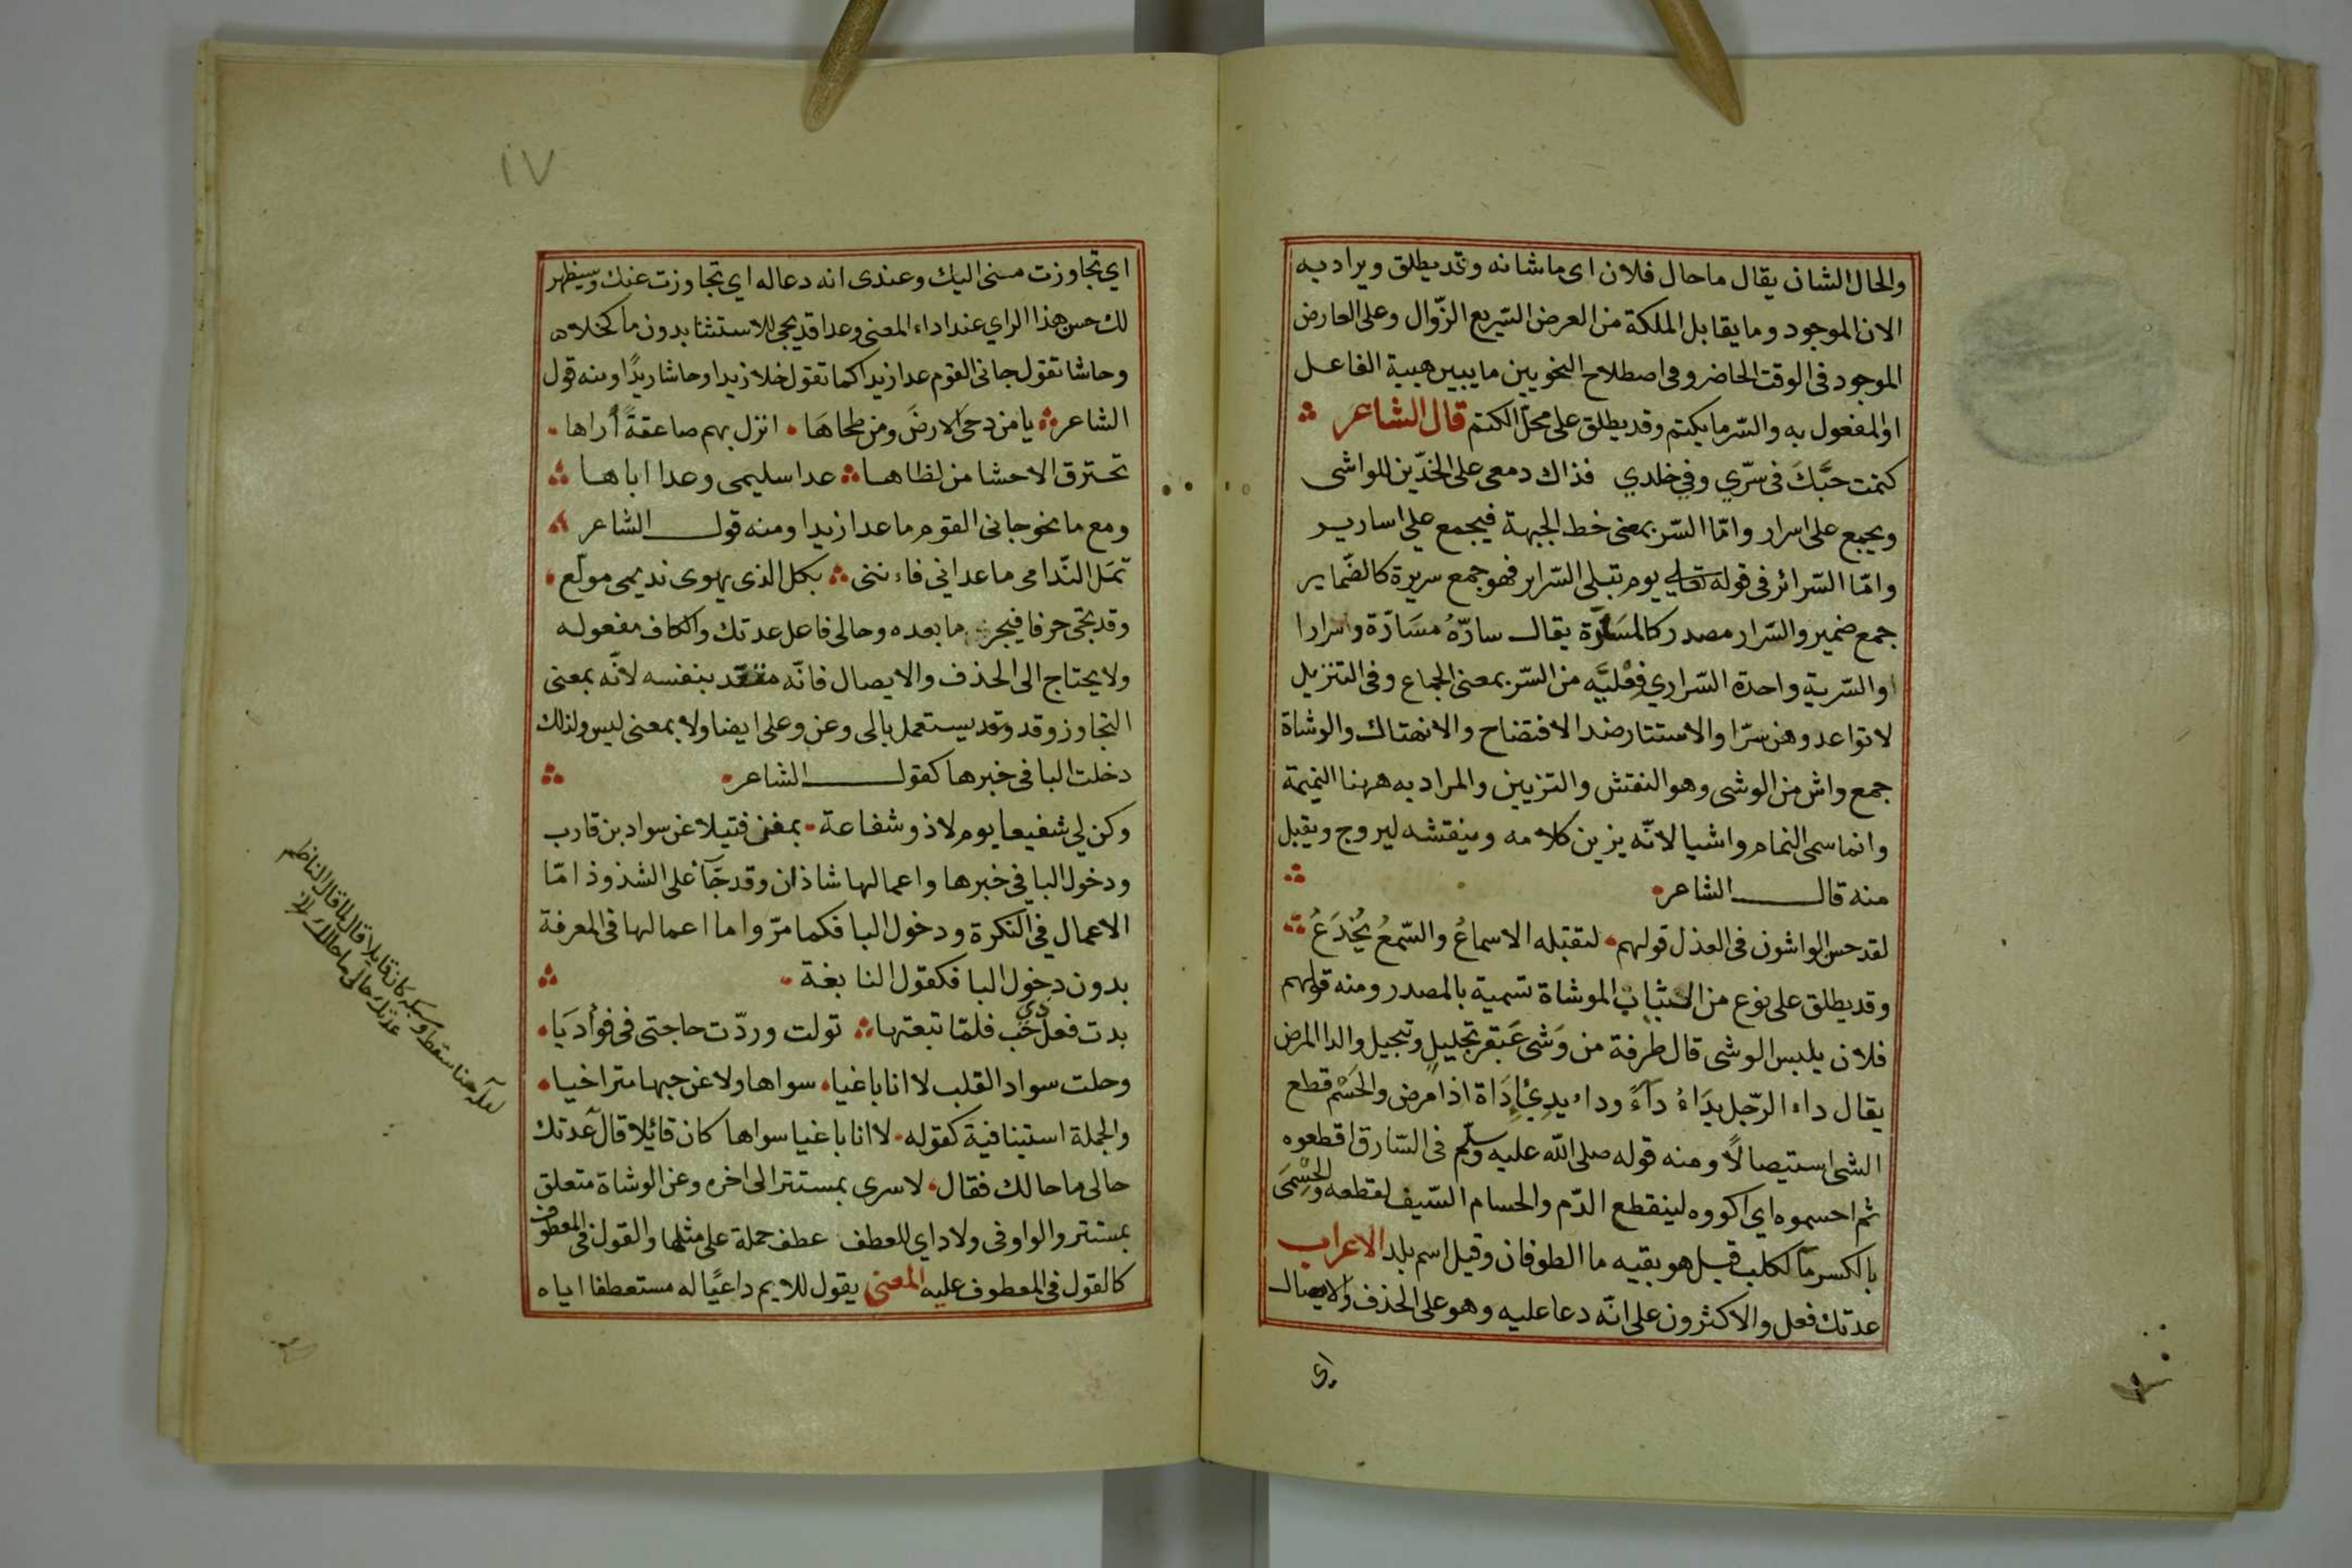 والحال الشان يقال ما حال فلان اى ما شانه وقد يطلق ويراد به
الان الموجود وما يقابل الملكة من العرض السّريع الزّوال وعلى العارض
الموجود فى الوقت الحاضر وفى اصطلاح النحويين ما يبين هيية الفاعل
او المفعول به والسّر ما يكتم وقد يطلق على محلّ الكتم قال الشاعر
كتمت حبَّكَ فى سرّي وفي خلدي فذاك دمعى على الخدّين للواشى
ويجمع على اسرار وامّا السّر بمعنى خط الجبهة فيجمع على اسارير
وامّا السّرائر فى قوله تعالى يوم تبلى السّراير فهو جمع سريرة كالضّماير
جمع ضمير والسّرار مصدر كالمسَارّة يقال سارّهُ مسَارّة واسرارا
او السّرية واحدة السّراري فِعْليَّه من السّر بمعنى الجماع وفى التنزيل
لا تواعدوهن سرّا والاستتار ضد الافتضاح والانهتاك والوشاة
جمع واش من الوشى وهو النقش والتزيين والمراد به ههنا النميمة
وانما سمى النمام واشيا لانّه يزين كلامه وينقشه ليروج ويقبل
منه قال الشاعر
لقد حسن الواشون فى العذل قولهم لتقبله الاسماعُ والسّمعُ يُخْدَعُ
وقد يطلق على نوع من الثياب الموشاة تسمية بالمصدر ومنه قولهم
فلان يلبس الوشى قال طرفة من وَشى عَبقر تجليلٍ وتبجيل والدا المرض
يقال داء الرّجل يدَاءُ دآءً وداء يدِئُ اِدَاة اذا مرض والحَسْم قطع
الشى استيصالاً ومنه قوله صلى الله عليه وسلم فى السّارق اقطعوه
ثم احسموه اى اكووه لينقطع الدّم والحسام السّيف لقطعه والحِسْمَى
بالكسر مآ لكلب قيل هو بقيه ما الطوفان وقيل اسم بلد الاعراب
عدتك فعل والاكثرون على انّه دعا عليه وهو على الحذف والايصال
اى
١٧
اي تجاوزت منى اليك وعندى انه دعا له اي تجاوزت عنك وسيظهر
لك حسن هذا الراي عند اداء المعنى وعدا قد يجى للاستثنا بدون ما كخلا
وحاشا تقول جانى القوم عدا زيدا كما تقول خلا زيدا وحاشا زيدًا ومنه قول
الشاعر يا من دحى الارضَ ومن طحاهَا انزل بهم صاعقةً أراها
تحترق الاحشا من لظاها عدا سليمى وعدا اباها
ومع ما نحو جانى القوم ما عدا زيدا ومنه قول الشاعر
تمَل النّدامى ما عدانى فاننى بكل الذى يهوى نديمى مولع
وقد يجى حرفا فيجر ما بعده وحالى فاعل عدتك والكاف مفعوله
ولا يحتاج الى الحذف والايصال فانّه متعد بنفسه لانّه بمعنى
التجاوز وقد وقد يستعمل بالى وعن وعلى ايضا ولا بمعنى ليس ولذلك
دخلت البا فى خبرها كقول الشاعر
وكن لي شفيعا يوم لاذو شفاعة بمغن فتيلا عن سواد بن قارب
ودخول البا في خبرها واعمالها شاذان وقد جآ على الشذوذ امّا
الاعمال في النكرة ودخول البا فكما مرّ واما اعمالها فى المعرفة
بدون دخول البا فكقول النابغة
بدت فعل ذى حب فلمّا تبعتها تولت وردّت حاجتى فى فوأديَا
وحلت سواد القلب لا انا باغيا سواها ولا عن حبها متراخيا
والجملة استينافية كقوله لا انا باغيا سواها كان قائيلا قال عدتك
حالى ما حالك فقال لا سرى بمستتر الى اخره وعن الوشاة متعلق
بمستتر والواو فى ولا داي للعطف عطف جملة على مثلها والقول فى المعطوف
كالقول فى المعطوف عليه المعنى يقول للايم داعيًا له مستعطفا اياه
لعله هنا سقط وسبكه كان قايلا قال لما قال الناظم
عدتك حالى ما حالك